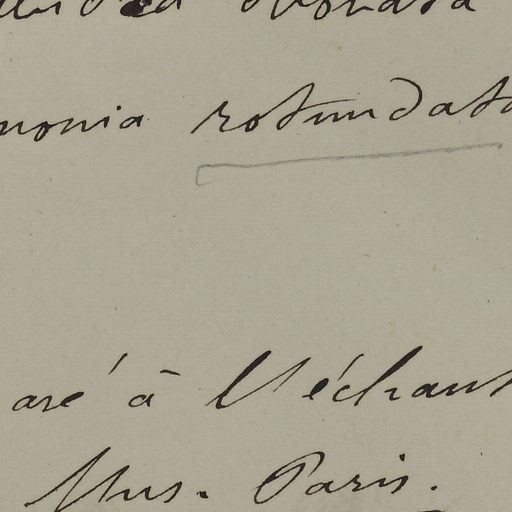 monia rotundata
aré à l'échant
Mus. Paris.